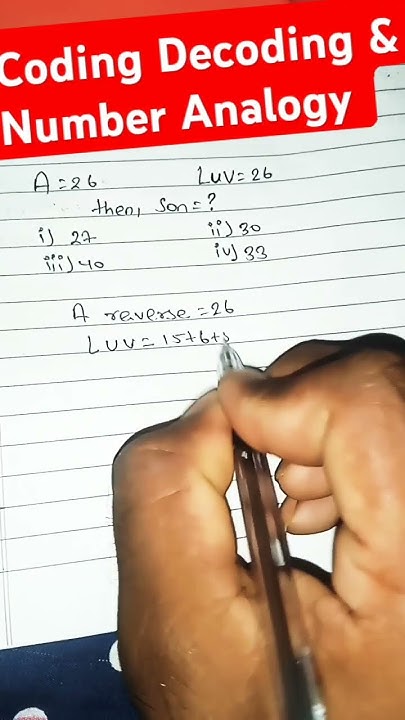 Coding Decoding &
Number Analogy
A = 26 Luv = 26
then, Son = ?
i) 27 ii) 30
iii) 40 iv) 33
A reverse = 26
L U V = 15+6+5